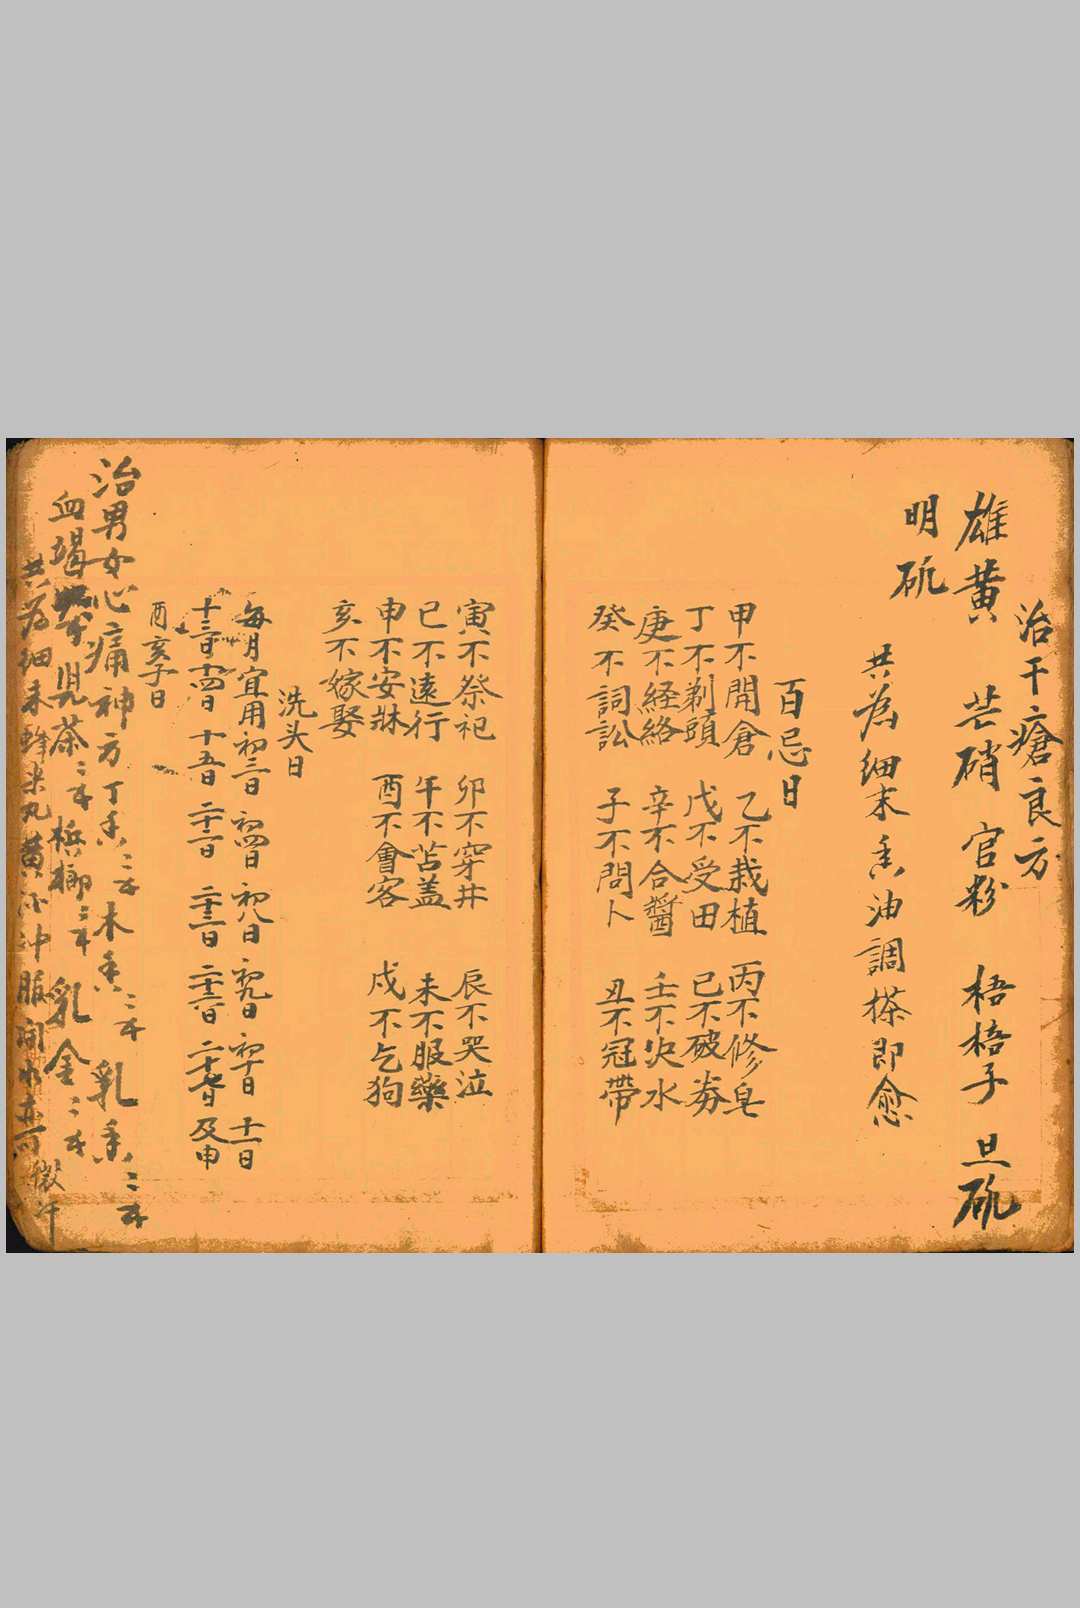 治干瘡良方
雄黄 芒硝 官粉 梧桰子 旦矾
明矾
共為細末香油調搽即愈
百忌日
甲不開倉 乙不栽植 丙不修皂
丁不剃頭 戊不受田 己不破券
庚不経絡 辛不合醬 壬不決水
癸不詞訟 子不問卜 丑不冠帶
寅不祭祀 卯不穿井 辰不哭泣
巳不遠行 午不苫盖 未不服藥
申不安牀 酉不會客 戍不乞狗
亥不嫁娶
洗头日
每月宜用初三日 初四日 初八日 初九日 初十日 十一日
十三日 十四日 十五日 二十二日 二十三日 二十六日 二十七日及申
酉亥子日
治男女心痛神方丁香二木香二乳香二
血竭 児茶二 梹榔二 乳金二
共為細末蜂米丸黄 冲服開水亦可